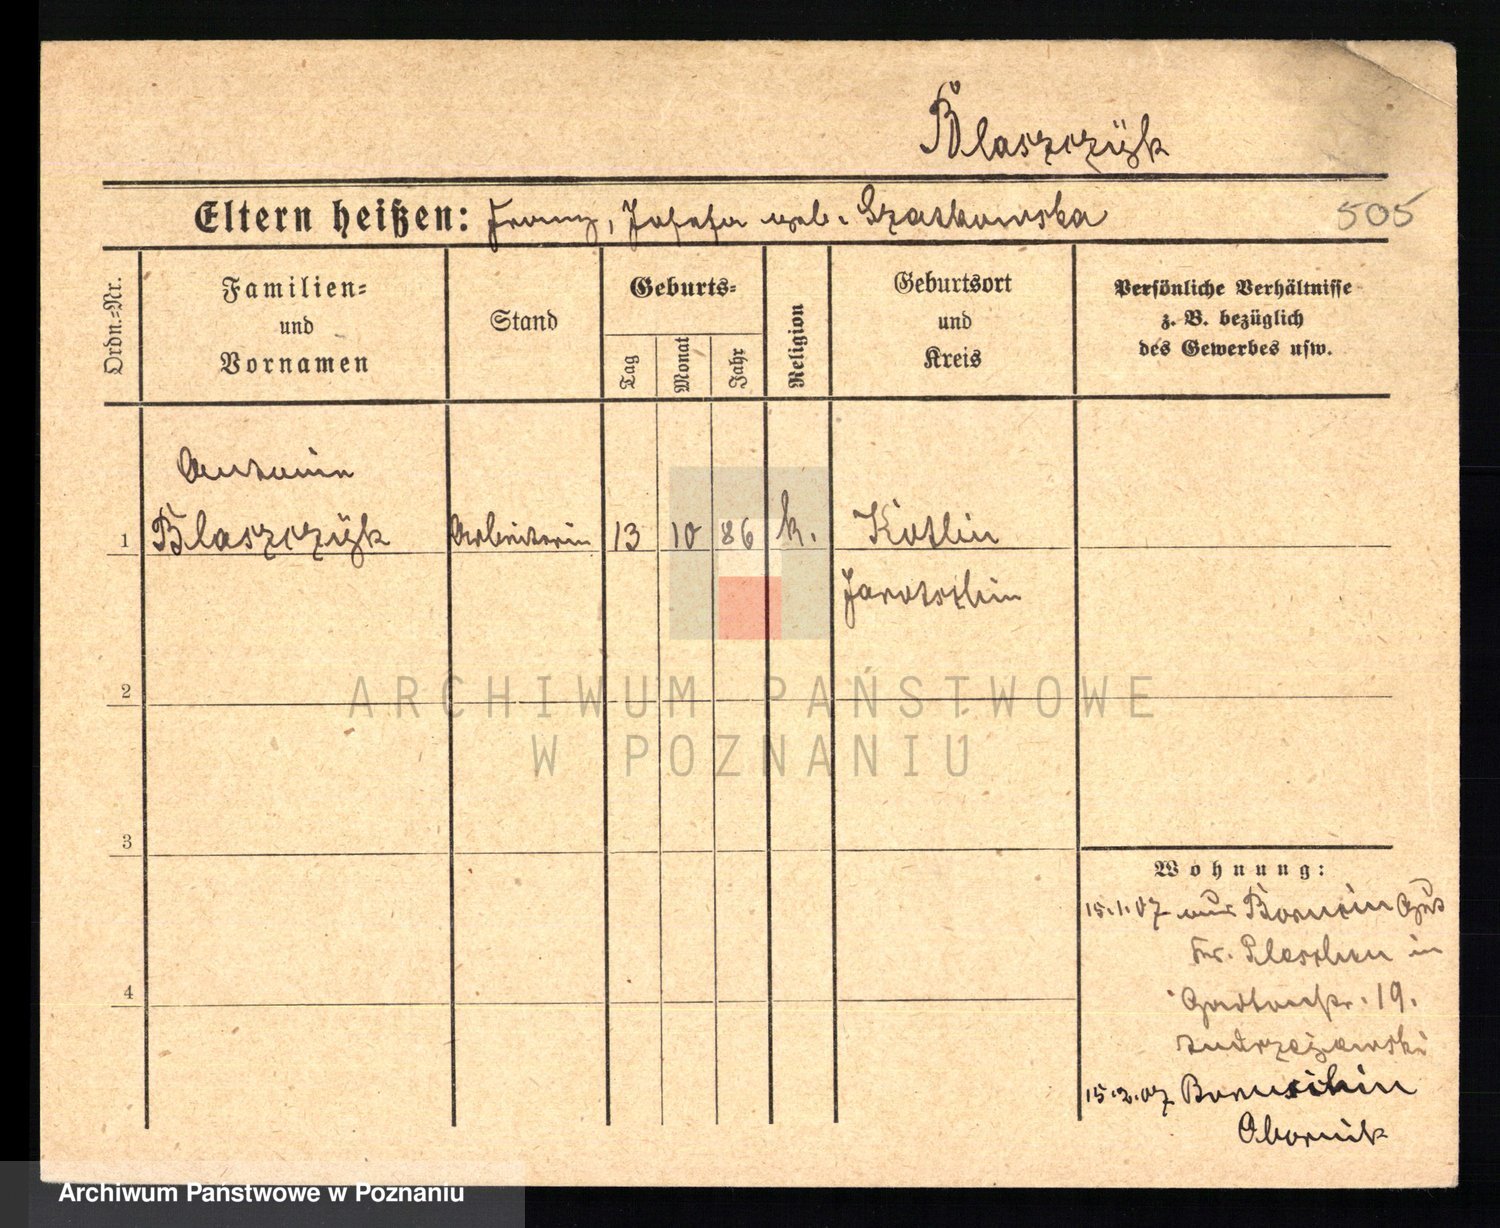 Blaszczÿk
Eltern heißen: Franz, Josefa geb. Szatkowska
505
Ordn.=Nr.
Familien=
und
Vornamen
Stand
Geburts=
Tag
Monat
Jahr
Religion
Geburtsort
und
Kreis
Persönliche Verhältnisse
z. B. bezüglich
des Gewerbes usw.
Antonie
1 Blaszczÿk Arbeiterin 13 10 86 k. Kotlin
Jarotschin
2
ARCHIWUM PAŃSTWOWE
W POZNANIU
3
Wohnung:
15.1.07 aus Borucin Gut
Kr. Pleschen in
4
Gartenstr. 19.
15.2.07
Obornik
Archiwum Państwowe w Poznaniu